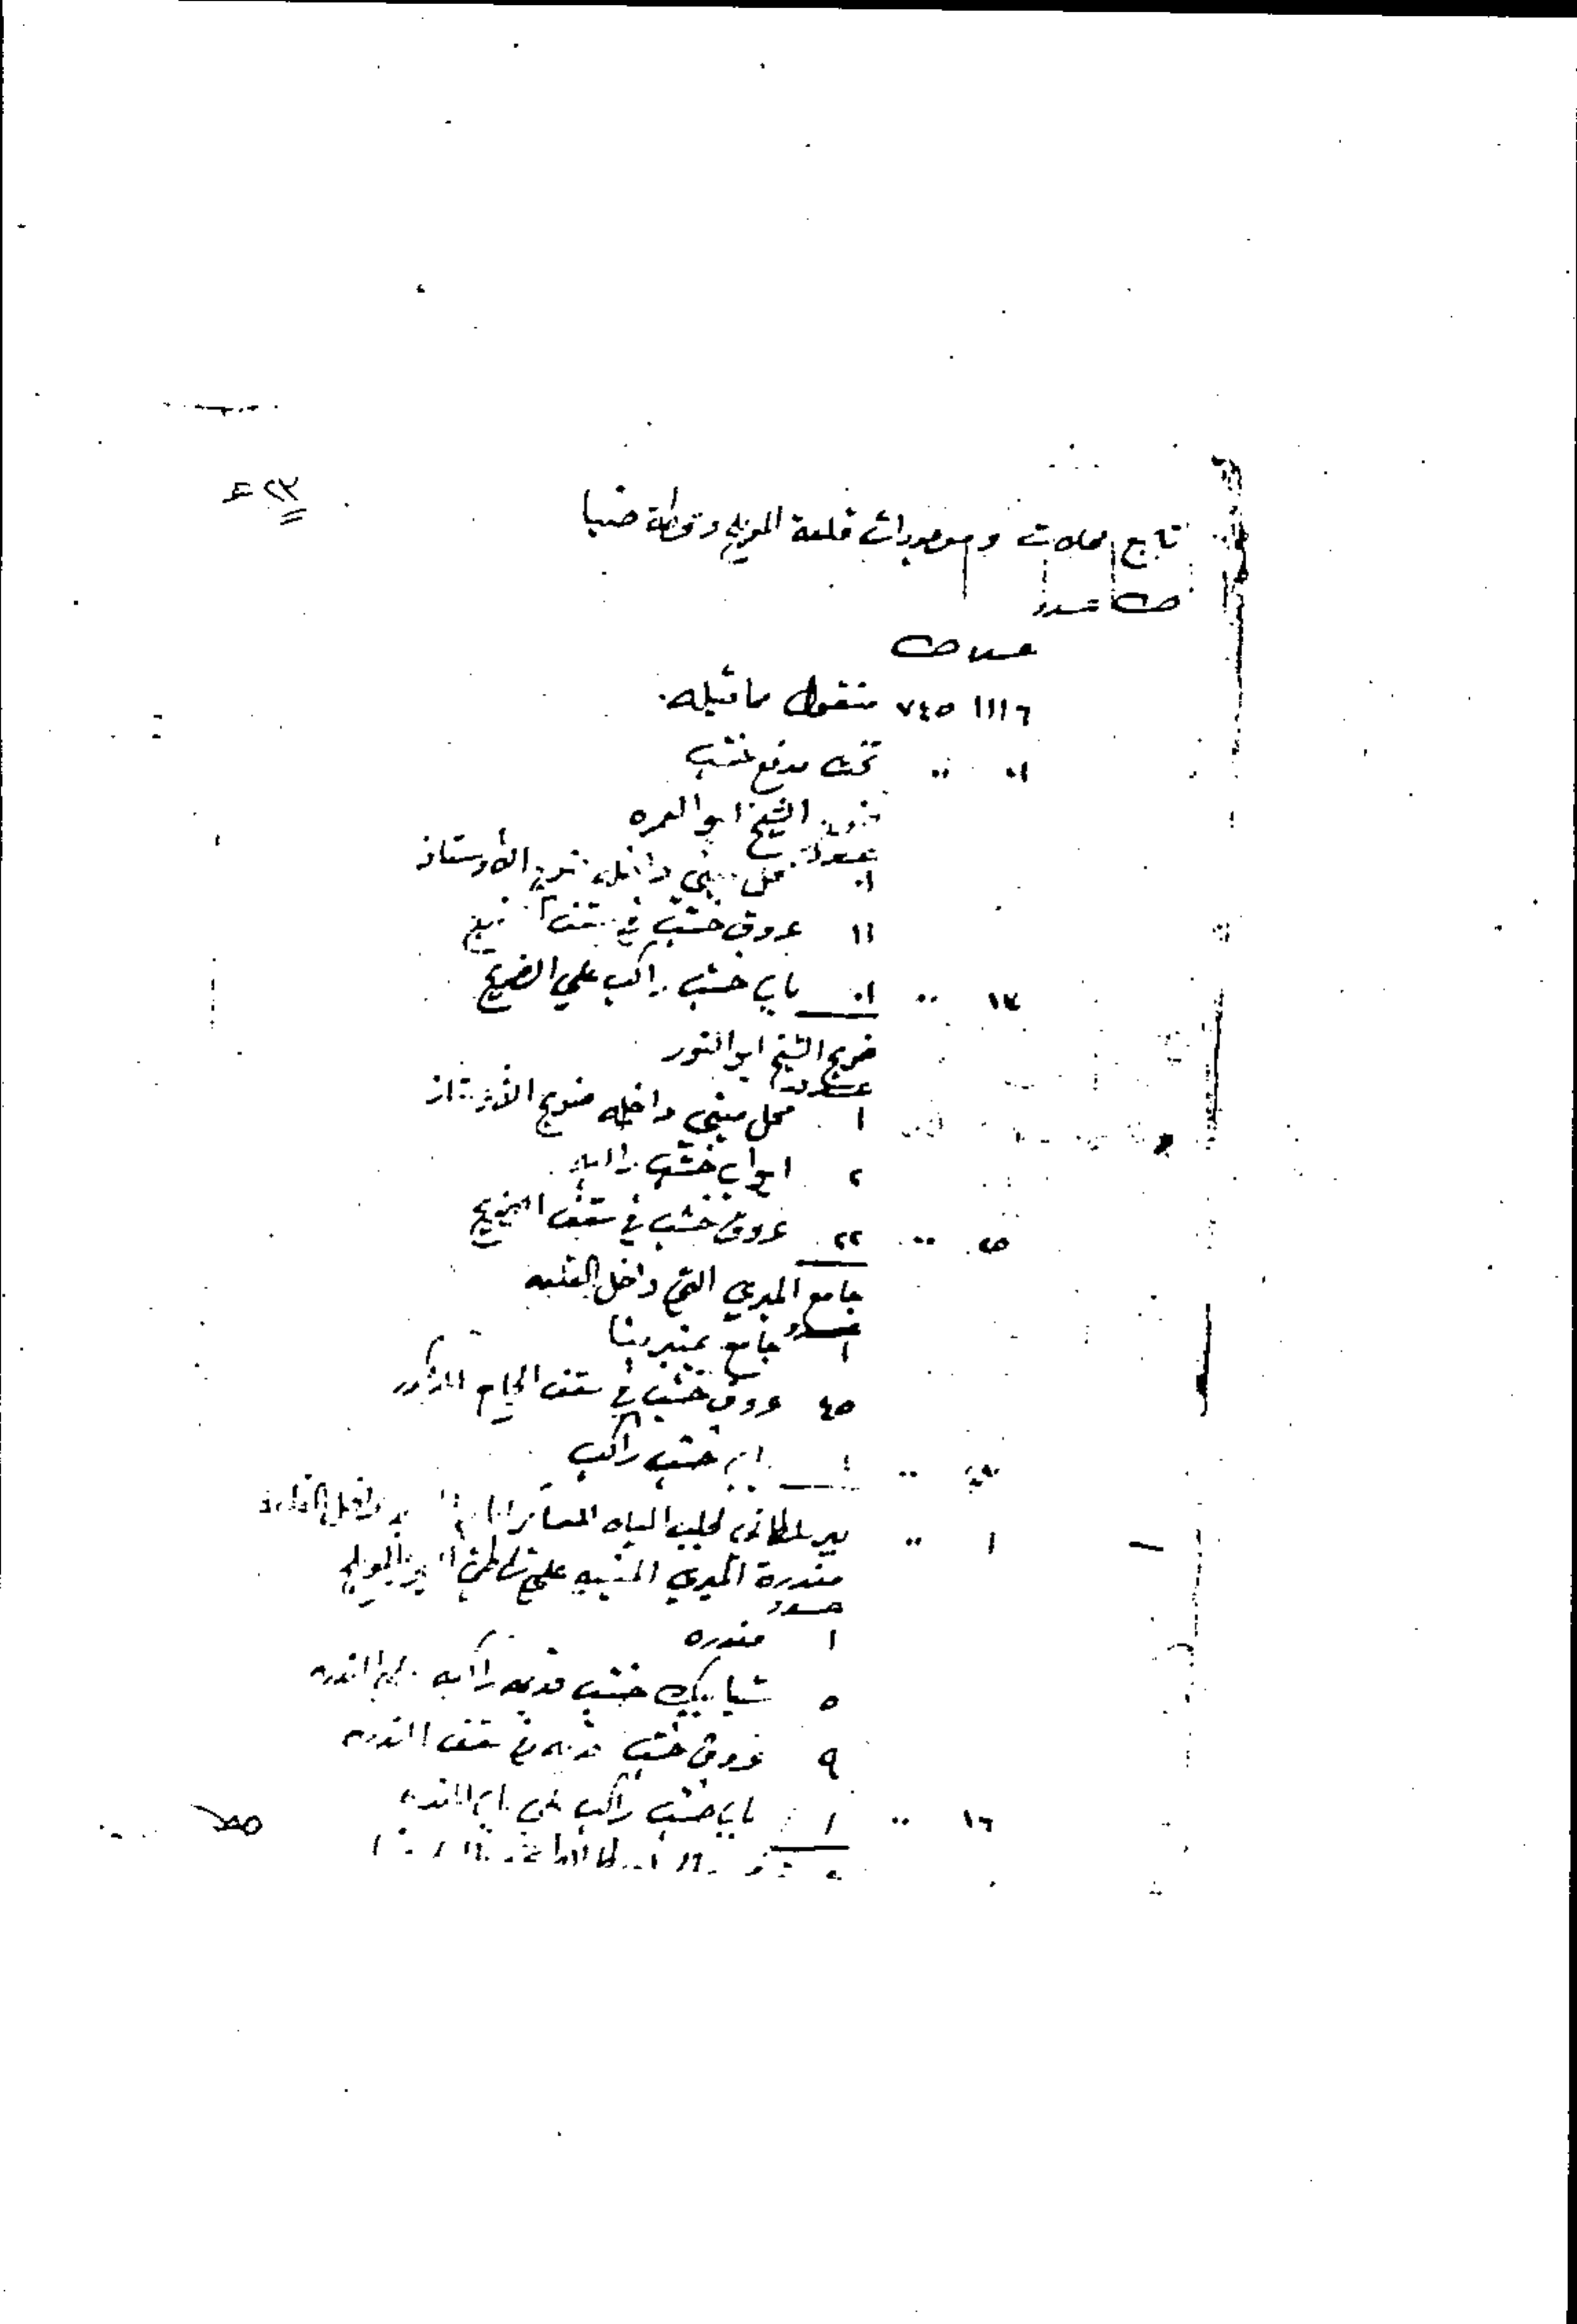 تابع محلات وموجودات قلعة المويلح ومحطة ضبا
عدد
١١١٦ ٧٤٥ منقول ما قبله
٠١ ٠٠ تخت مدفع خشب
ضريح الشيخ ابو العمره
عدد
٠١ محل مبني داخله ضريح الأوستاذ
١١ عروق خشب في سقف الضريح
١٣ ٠٠ ٠١ باب خشب راكب علي الضريح
ضريح الشيخ ابو النور
عدد
١ محل مبني داخله ضريح الأوستاذ
٢ ابواب خشب راكبه
٢٥ ٠٠ ٢٢ عروق خشب في سقف الضريح
جامع الميري التي داخل القلعه
عدد
١ جامع بمنبر بنا
٤٥ عروق خشب في سقف الجامع المذكور
٤٧ ٠٠ ١ باب خشب راكب
١ ٠٠ بير سلطاني لجلب المياه داخل القلعه
مندرة الميري المبنيه علي شاطئ المويلح
عدد
١ مندره
٥ شبابيك خشب قديمه راكبه المندره
٩ عروق خشب قديمه في سقف المندره
١٦ ٠٠ ١ باب خشب راكب علي باب المندره